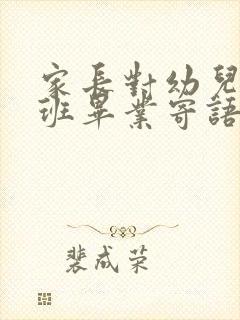 家長對幼兒
班畢業寄語
裴成荣